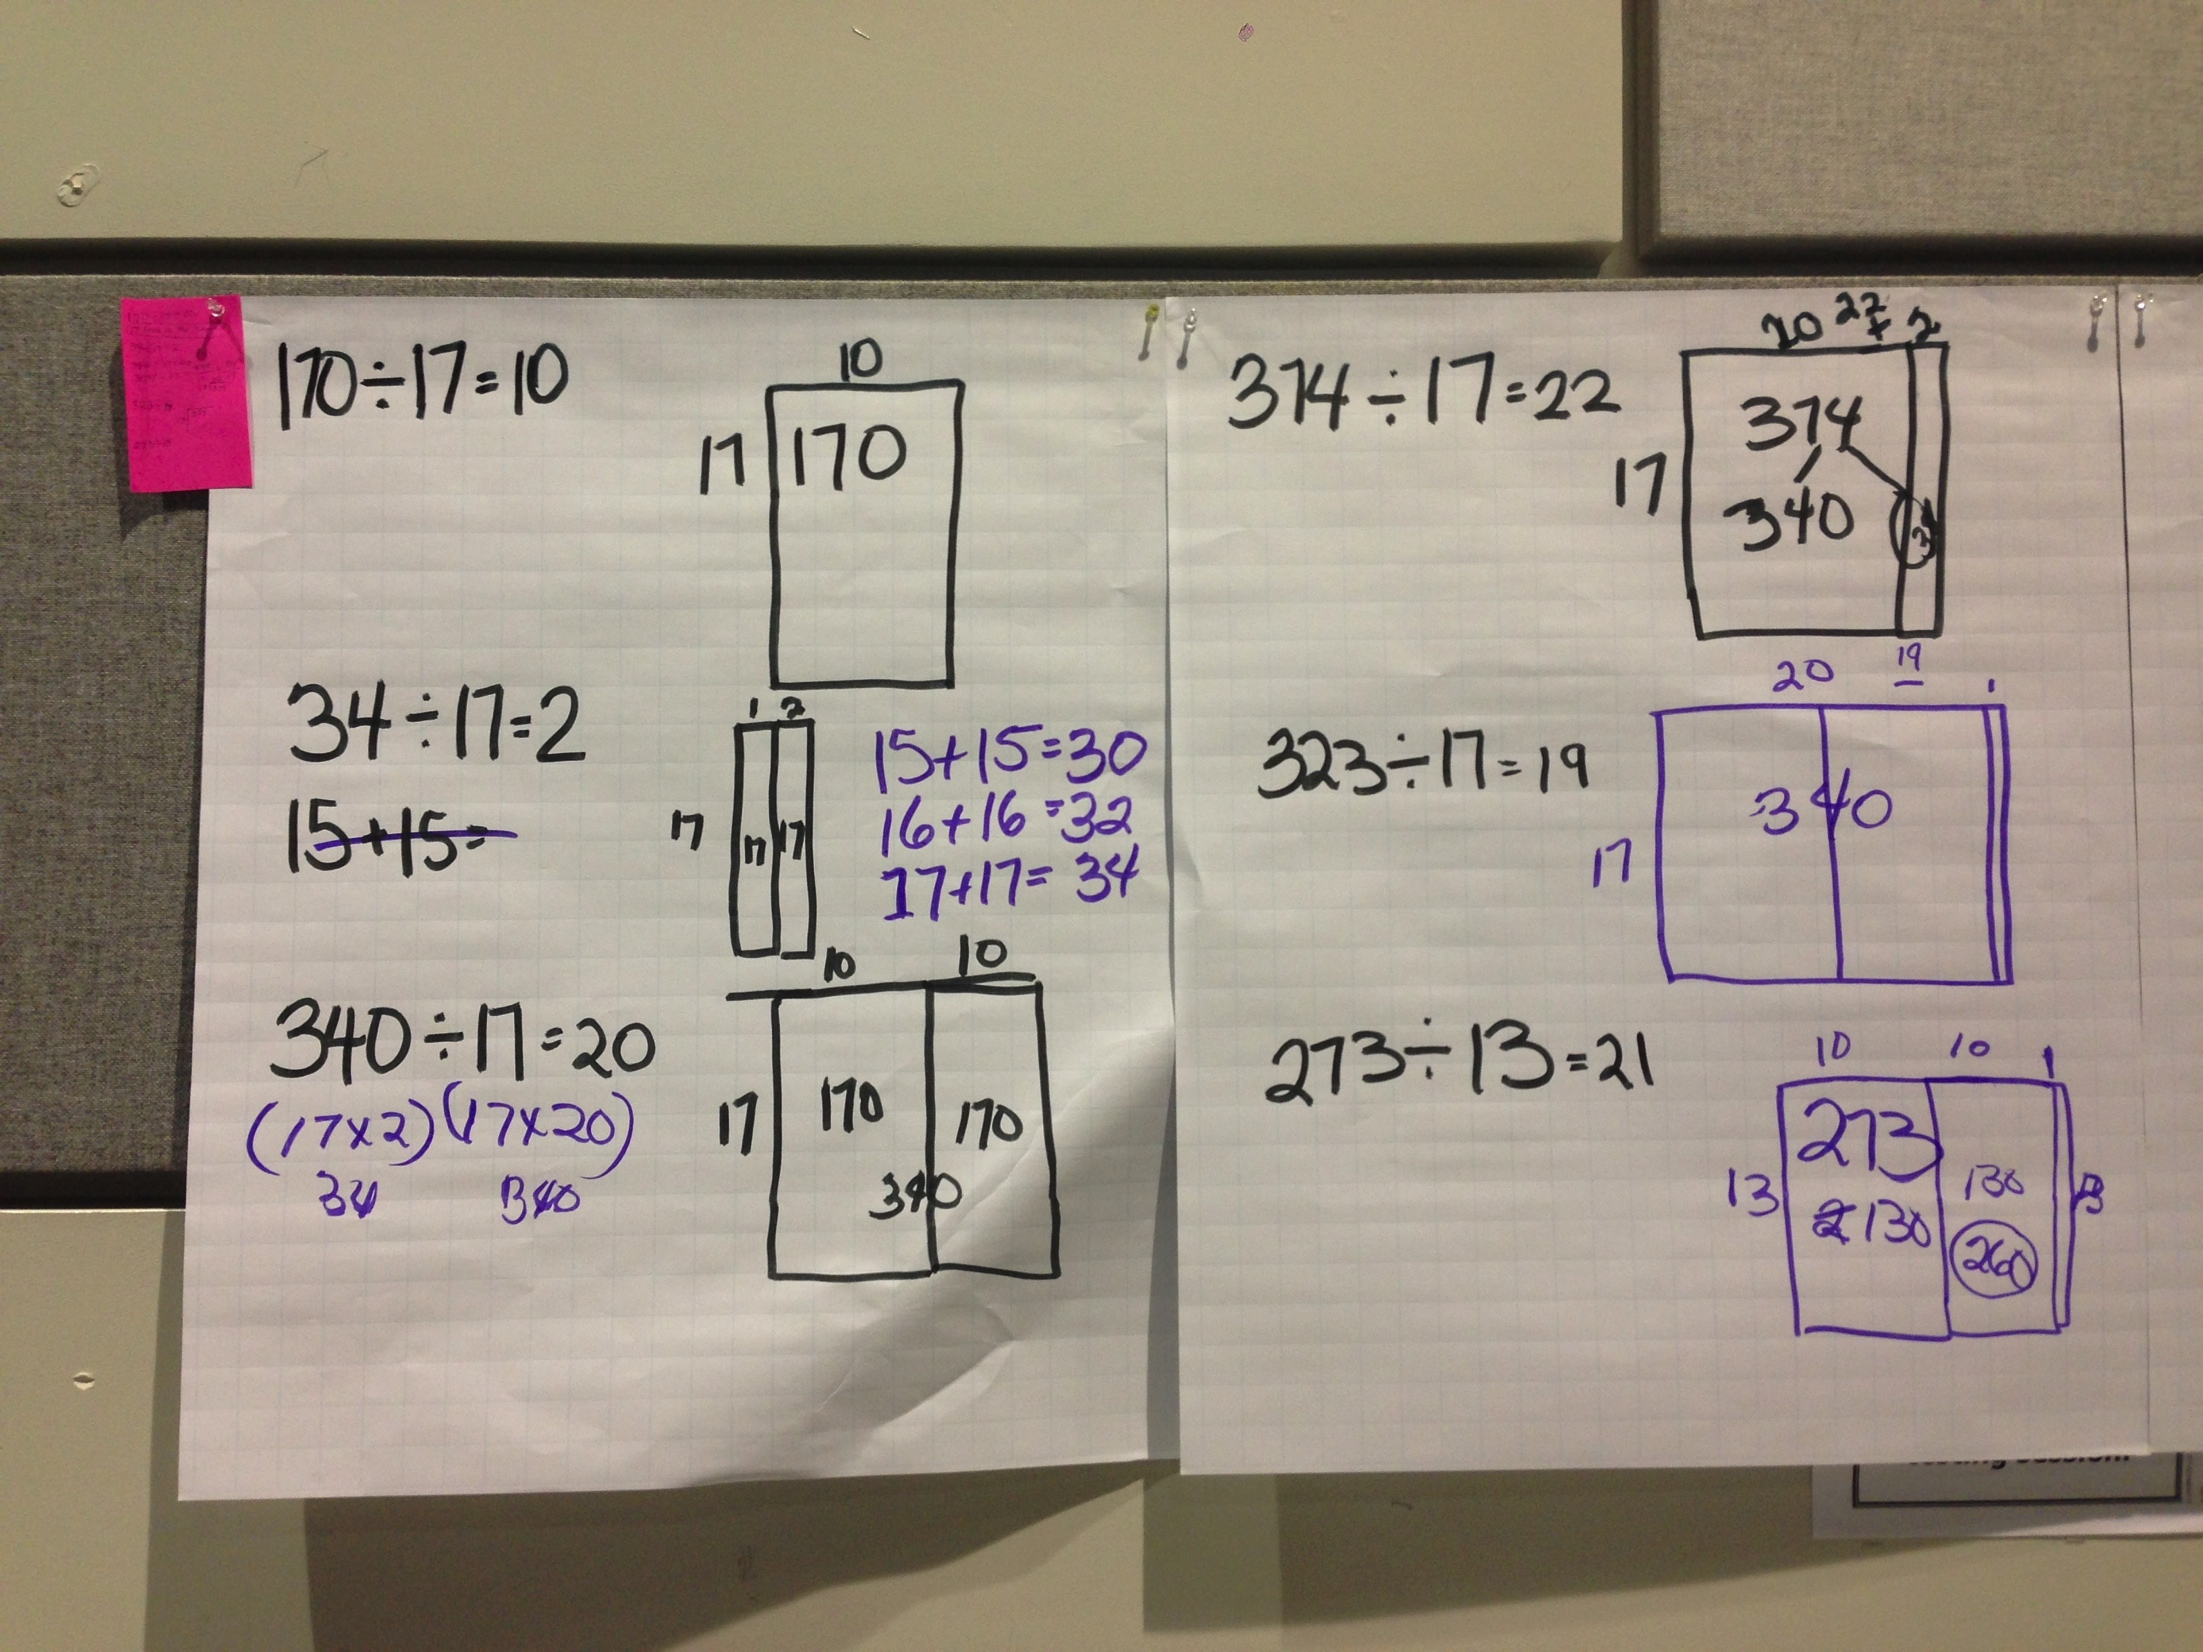 170÷17=10
10
17
170
34÷17=2
15+15=
1 2
17
17 17
15+15=30
16+16=32
17+17=34
340÷17=20
(17x2)(17x20)
34 340
10 10
17
170 170
340
374÷17=22
20 + 2
22
17
374
340 34
323÷17=19
20 19 1
17
340
273÷13=21
10 10 1
13
273
130 130 13
260